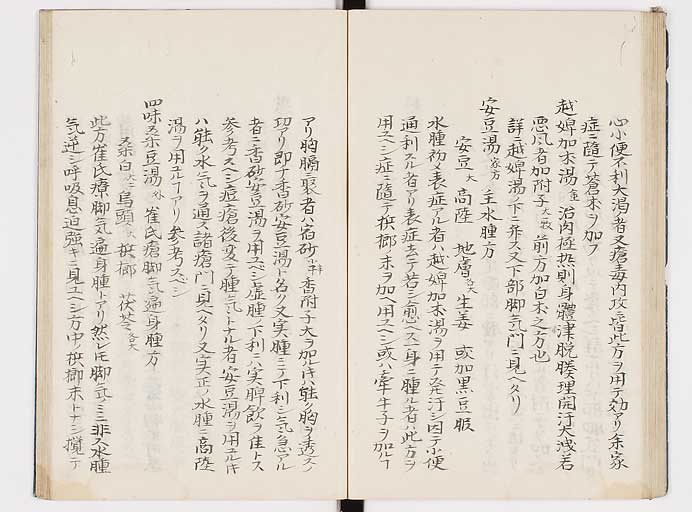 心小便不利大渇者又瘡毒内攻ノ皆此方ヲ用テ効アリ余家
症ニ隨テ蒼朮ヲ加フ
越婢加朮湯 治内極熱則身體津脱腠理開汗大洩若
悪風者加附子 前方加白朮之方也
詳ニ越婢湯ノ下ニ弁ス又下部脚氣門ニ見ヘタリ
安豆湯 家方 主水腫方
安豆 大 商陸 地膚 各大 生姜 或加黒豆服
水腫初メ表症アル者ハ越婢加朮湯ヲ用テ発汗シ因テ小便
通利スル者アリ表症去テ若シ愈ヘス一身ニ腫ル者ハ此方ヲ
用ユヘシ症ニ隨テ檳榔末ヲ加ヘ用ユヘシ或ハ牽牛子ヲ加ルモ
アリ胸膈聚者ハ宿砂 香附子大ヲ加ルキハ能ク胸ヲ透スノ
功アリ即チ香砂安豆湯ト名ク又実腫ニノ下利シ氣急アル
者ニ香砂安豆湯ヲ用ユベシ虚腫ノ下利ニハ実脾飲ヲ佳トス
参考スヘシ痘瘡後変テ腫氣トナル者安豆湯ヲ用ユルキ
ハ能ク水氣ヲ通ス諸瘡門ニ見ヘタリ又実正ノ水腫ニ商陸
湯ヲ用ユルフアリ参考スベシ
四味桒豆湯 外 崔氏療脚氣遍身腫方
桒白 大 烏頭 檳榔 茯苓 各大
此方崔氏療脚氣遍身腫トアリ然レ𪜈脚氣ノミニ非ス水腫
氣逆シ呼吸息迫強キニ見ユヘシ方中ノ檳榔末トナシ攪テ